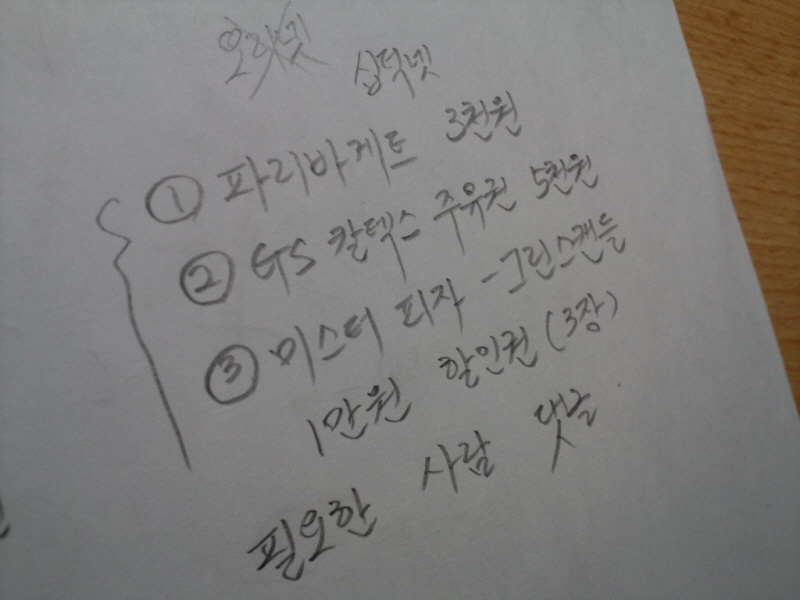 삽턱넷
① 파리바게트 3천원
② GS 칼텍스 주유권 5천원
③ 미스터 피자 - 그린스캔들
1만원 할인권 (3장)
필요한 사람 댓글.